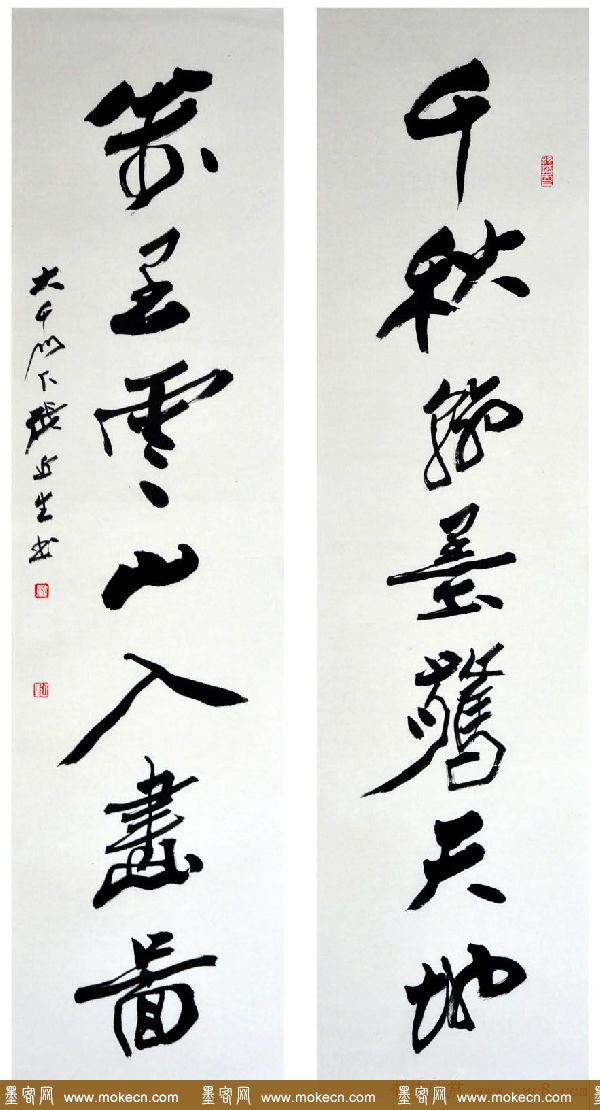 千秋翰墨驚天地
萬里雲山入畫圖
大千門下張生書
墨客网 www.mokecn.com 墨客网 www.mokecn.com 墨客网 www.mokecn.com